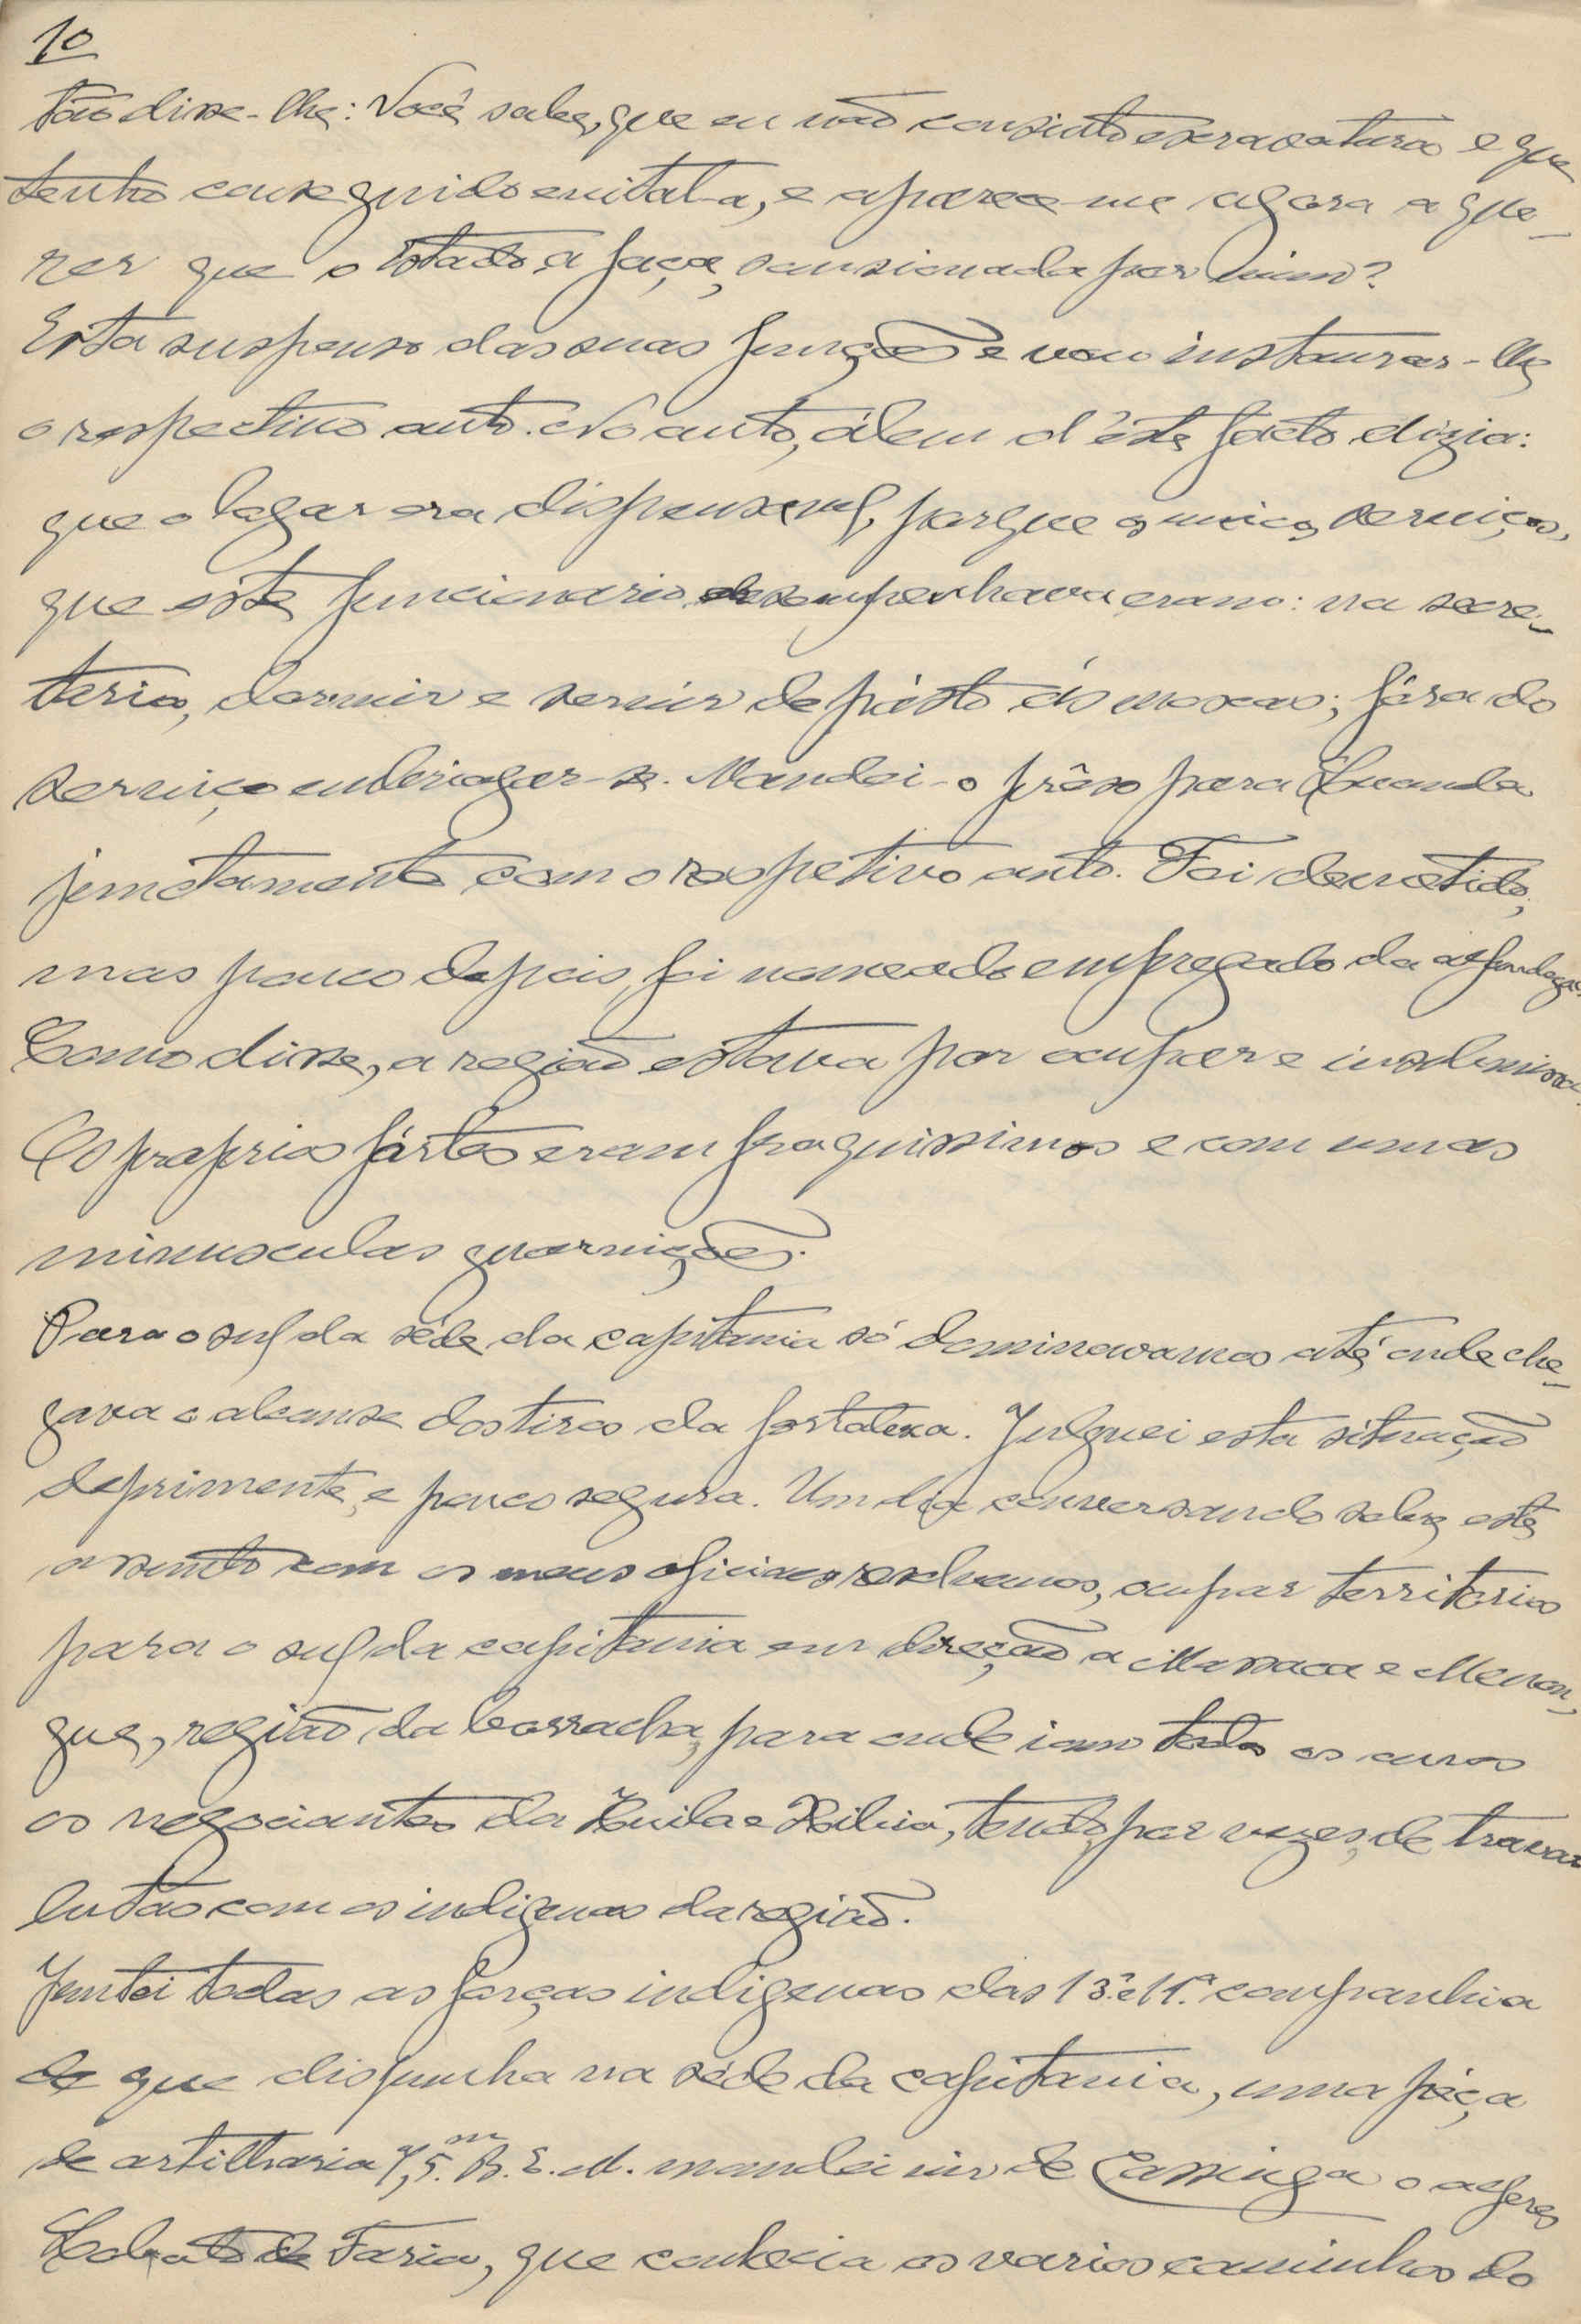 10
tão disse-lhe: Você sabe, que eu não consinto escravatura e que
tenho conseguido evital-a, e aparece-me agora a que-
rer que o Estado a faça, sansionada por mim?
Esta suspenso das suas funções e vou instaurar-lhe
o respectivo auto. No auto, álem d'êste facto, dizia:
que o logar era dispensavel, porque os unicos serviços,
que este funcionario desempenhava eram: na secre-
taria, dormir e servir de pásto ás moscas; fóra do
serviço embriagar-se. Mandei-o prêso para Luanda
junctamente com o respetivo auto. Foi demetido,
mas pouco depois, foi nomeado empregado da alfandega.
Como disse, a região estava por ocupar e
Os proprios fórtes eram fraquissimos e com umas
minusculas guarnições.
Para o sul da séde da capitania só dominavamos até onde che-
gava o alcanse dos tiros da fortalesa. Julguei esta situação
deprimente, e pouco segura. Um dia conversando sobre este
assunto com os meus oficiaes resolvemos, ocupar territorios
para o sul da capitania em direção a Massaca e Menon-
gue, região da borracha, para onde iam todos os anos
os negociantes da Huila e Bihé, tendo, por vezes, de travar
lutas com os indigenas da região.
Juntei todas as forças indigenas das 13.ª e 11.ª companhia
de que dispunha na séde da capitania, uma péça
de artilharia 7,5.m B. E. M. mandei vir de Cassinga o alferes
de Faria, que conhecia os varios caminhos do